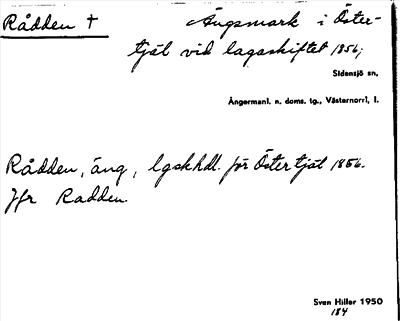 Rådden † Ängsmark i Öster-
tjäl vid lagaskiftet 1856;
Sidensjö sn,
Ångermanl. n. doms. tg., Västernorrl, l.
Rådden, äng, lgskhdl. för Östertjäl 1856.
Jfr Radden.
Sven Hiller 1950
184